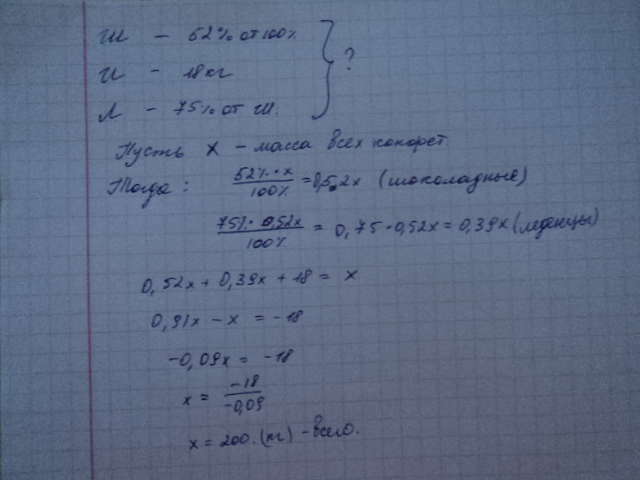 Ш - 52% от 100%
И - 18 кг } ?
Л - 75% от Ш.
Пусть х - масса всех конфет.
Тогда: 52%·х/100% = 0,52х (шоколадные)
75%·0,52х/100% = 0,75·0,52х = 0,39х (леденцы)
0,52х + 0,39х + 18 = х
0,91х - х = -18
-0,09х = -18
х = -18/-0,09
х = 200. (кг) - всего.